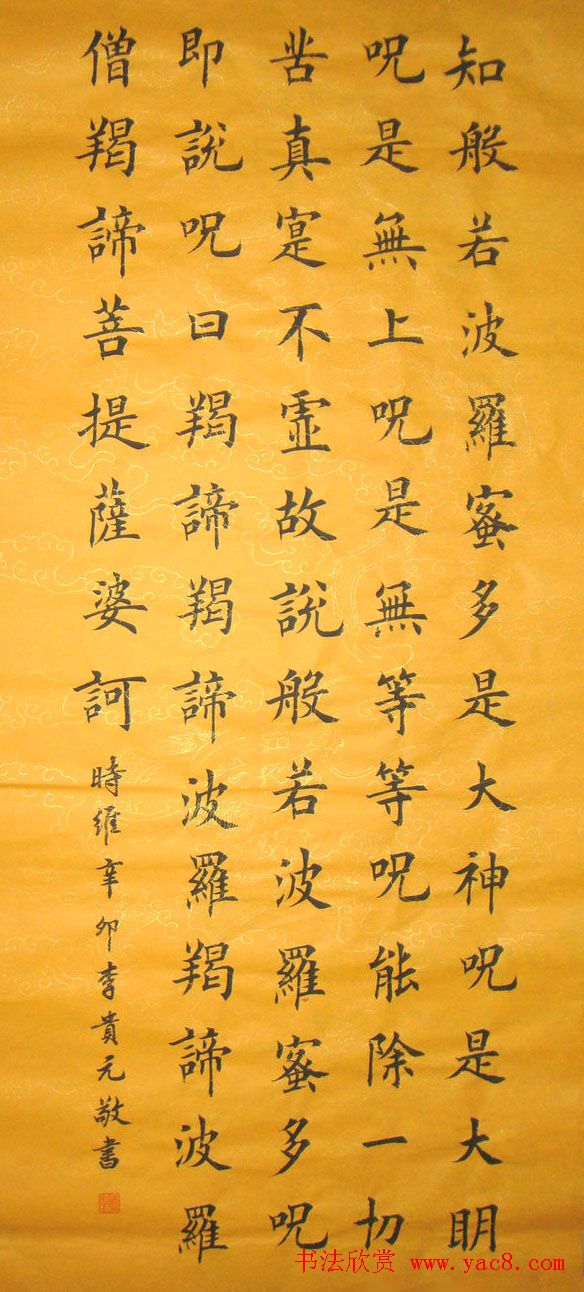 知般若波羅蜜多是大神呪是大明
呪是無上呪是無等等呪能除一切
苦真寔不虛故說般若波羅蜜多呪
即說呪曰羯諦羯諦波羅羯諦波羅
僧羯諦菩提薩婆訶
時維辛卯李貴元敬書
书法欣赏 www.yac8.com